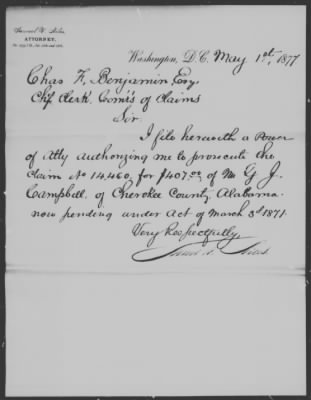 ATTORNEY,
Washington, D.C. May 1st, 1877
Chas F. Benjamin Esq
Chf Clerk Com's of Claims
Sir
I file herewith a Power
of atty authorizing me to prosecute the
claim No 14460, for $1407.00 of Mr G J
Campbell, of Cherokee County, Alabama.
now pending under Act of March 3d 1871.
Very Respectfully,